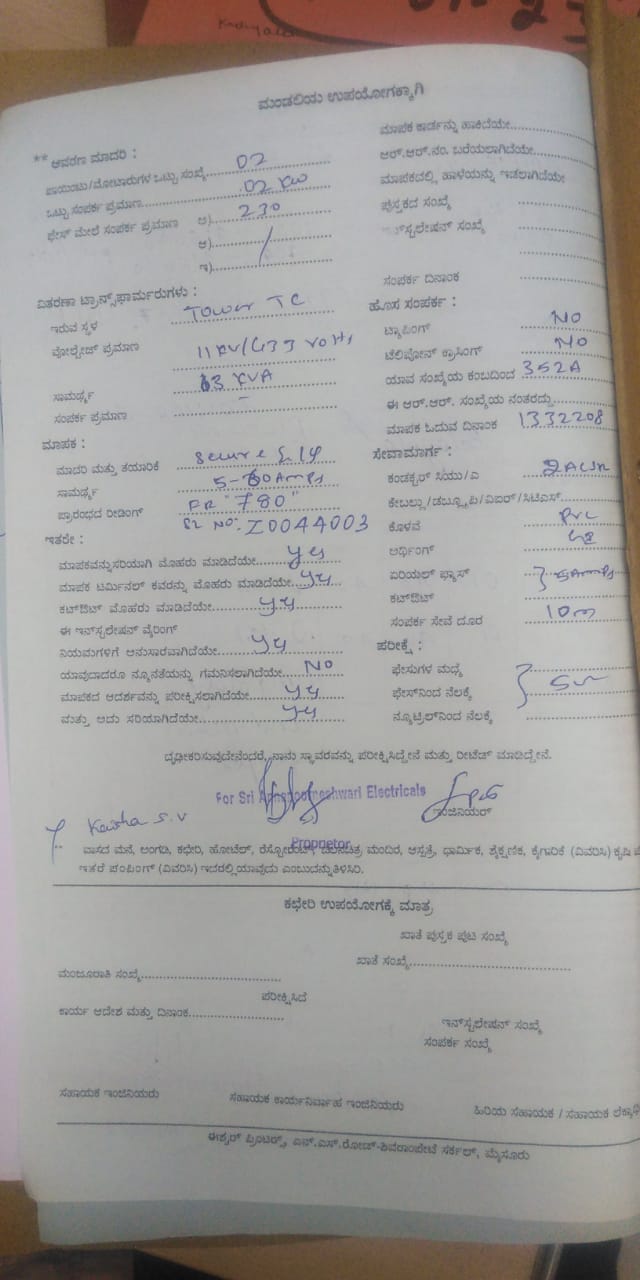 ಮಂಡಲಿಯ ಉಪಯೋಗಕ್ಕಾಗಿ
** ಆವರಣ ಮಾದರಿ :
ಪಾಯಿಂಟು/ಮೋಟಾರುಗಳ ಒಟ್ಟು ಸಂಖ್ಯೆ 02
ಒಟ್ಟು ಸಂಪರ್ಕ ಪ್ರಮಾಣ 02 KW
ಫೇಸ್ ಮೇಲೆ ಸಂಪರ್ಕ ಪ್ರಮಾಣ ಅ) 230
ಆ)
ಇ)
ವಿತರಣಾ ಟ್ರಾನ್ಸ್‌ಫಾರ್ಮರುಗಳು :
ಇರುವ ಸ್ಥಳ Tower TC
ವೋಲ್ಟೇಜ್ ಪ್ರಮಾಣ 11KV/433 volts
ಸಾಮರ್ಥ್ಯ 63 KVA
ಸಂಪರ್ಕ ಪ್ರಮಾಣ -
ಮಾಪಕ :
ಮಾದರಿ ಮತ್ತು ತಯಾರಿಕೆ Secure
ಸಾಮರ್ಥ್ಯ 5-30Amps
ಪ್ರಾರಂಭದ ರೀಡಿಂಗ್ FR "780"
Sl NO: Z0044003
ಇತರೇ :
ಮಾಪಕವನ್ನು ಸರಿಯಾಗಿ ಮೊಹರು ಮಾಡಿದೆಯೇ yes
ಮಾಪಕ ಟರ್ಮಿನಲ್ ಕವರನ್ನು ಮೊಹರು ಮಾಡಿದೆಯೇ yes
ಕಟ್‌ಔಟ್ ಮೊಹರು ಮಾಡಿದೆಯೇ yes
ಈ ಇನ್‌ಸ್ಟಲೇಷನ್ ವೈರಿಂಗ್
ನಿಯಮಗಳಿಗೆ ಅನುಸಾರವಾಗಿದೆಯೇ yes
ಯಾವುದಾದರೂ ನ್ಯೂನತೆಯನ್ನು ಗಮನಿಸಲಾಗಿದೆಯೇ NO
ಮಾಪಕದ ಆದರ್ಶವನ್ನು ಪರೀಕ್ಷಿಸಲಾಗಿದೆಯೇ yes
ಮತ್ತು ಅದು ಸರಿಯಾಗಿದೆಯೇ yes
ಮಾಪಕ ಕಾರ್ಡನ್ನು ಹಾಕಿದೆಯೇ
ಆರ್.ಆರ್.ನಂ. ಬರೆಯಲಾಗಿದೆಯೇ
ಮಾಪಕದಲ್ಲಿ ಹಾಳೆಯನ್ನು ಇಡಲಾಗಿದೆಯೇ
ಪುಸ್ತಕದ ಸಂಖ್ಯೆ
ನ್‌ಸ್ಟಲೇಷನ್ ಸಂಖ್ಯೆ
ಸಂಪರ್ಕ ದಿನಾಂಕ
ಹೊಸ ಸಂಪರ್ಕ :
ಟ್ಯಾಪಿಂಗ್ NO
ಟೆಲಿಫೋನ್ ಕ್ರಾಸಿಂಗ್ NO
ಯಾವ ಸಂಖ್ಯೆಯ ಕಂಬದಿಂದ 352A
ಈ ಆರ್.ಆರ್. ಸಂಖ್ಯೆಯ ನಂತರದ್ದು
ಮಾಪಕ ಓದುವ ದಿನಾಂಕ 1332208
ಸೇವಾಮಾರ್ಗ :
ಕಂಡಕ್ಟರ್ ಸಿಯು/ಎ
ಕೇಬಲ್ಲು/ಡಬ್ಲ್ಯೂಪಿ/ವಿಐರ್/ಸಿಟಿಎಸ್
ಕೊಳವೆ PVC
ಅರ್ಥಿಂಗ್
ಏರಿಯಲ್ ಫ್ಯೂಸ್ } 5Amps
ಕಟ್‌ಔಟ್
ಸಂಪರ್ಕ ಸೇವೆ ದೂರ 10m
ಪರೀಕ್ಷೆ :
ಫೇಸುಗಳ ಮಧ್ಯೆ
ಫೇಸ್‌ನಿಂದ ನೆಲಕ್ಕೆ
ನ್ಯೂಟ್ರಲ್‌ನಿಂದ ನೆಲಕ್ಕೆ
ದೃಢೀಕರಿಸುವುದೇನೆಂದರೆ, ನಾನು ಸ್ಥಾವರವನ್ನು ಪರೀಕ್ಷಿಸಿದ್ದೇನೆ ಮತ್ತು ರೀಟೆಡ್ ಮಾಡಿದ್ದೇನೆ.
For Sri Annapoorneshwari Electricals
ಇಂಜಿನಿಯರ್
Proprietor
ವಾಸದ ಮನೆ, ಅಂಗಡಿ, ಕಛೇರಿ, ಹೋಟೆಲ್, ರೆಸ್ಟೋರೆಂಟ್, ಚಲನಚಿತ್ರ ಮಂದಿರ, ಆಸ್ಪತ್ರೆ, ಧಾರ್ಮಿಕ, ಶೈಕ್ಷಣಿಕ, ಕೈಗಾರಿಕೆ (ವಿವರಿಸಿ) ಕೃಷಿ
ಇತರೆ ಪಂಪಿಂಗ್ (ವಿವರಿಸಿ) ಇದರಲ್ಲಿ ಯಾವುದು ಎಂಬುದನ್ನು ತಿಳಿಸಿರಿ.
ಕಛೇರಿ ಉಪಯೋಗಕ್ಕೆ ಮಾತ್ರ
ಖಾತೆ ಪುಸ್ತಕ ಪುಟ ಸಂಖ್ಯೆ
ಖಾತೆ ಸಂಖ್ಯೆ
ಮಂಜೂರಾತಿ ಸಂಖ್ಯೆ
ಪರೀಕ್ಷಿಸಿದೆ
ಕಾರ್ಯ ಆದೇಶ ಮತ್ತು ದಿನಾಂಕ
ಇನ್‌ಸ್ಟಲೇಷನ್ ಸಂಖ್ಯೆ
ಸಂಪರ್ಕ ಸಂಖ್ಯೆ
ಸಹಾಯಕ ಇಂಜಿನಿಯರು ಸಹಾಯಕ ಕಾರ್ಯನಿರ್ವಾಹ ಇಂಜಿನಿಯರು ಹಿರಿಯ ಸಹಾಯಕ / ಸಹಾಯಕ
ಈಶ್ವರ್ ಪ್ರಿಂಟರ್ಸ್, ಎನ್.ಎಸ್.ರೋಡ್-ಶಿವರಾಂಪೇಟೆ ಸರ್ಕಲ್, ಮೈಸೂರು